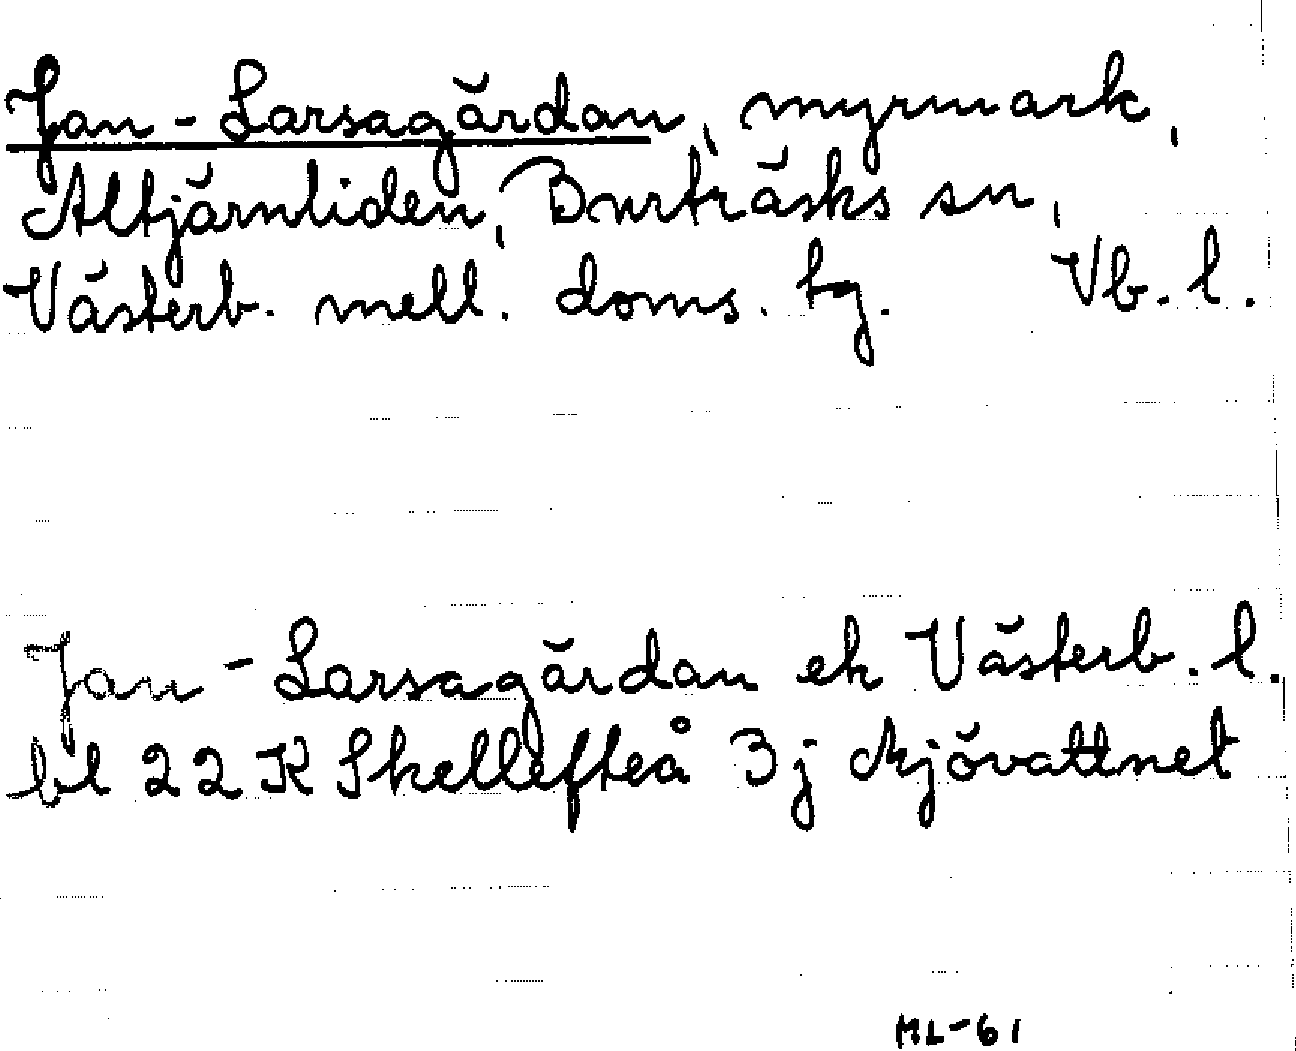 Jan-Larsagärdan, myrmark,
Altjärnliden, Burträsks sn,
Västerb. mell. doms. tg. Vb. l.
Jan-Larsagärdan ek Västerb. l.
bl 22 K Skellefteå 3j Mjövattnet
ML-61